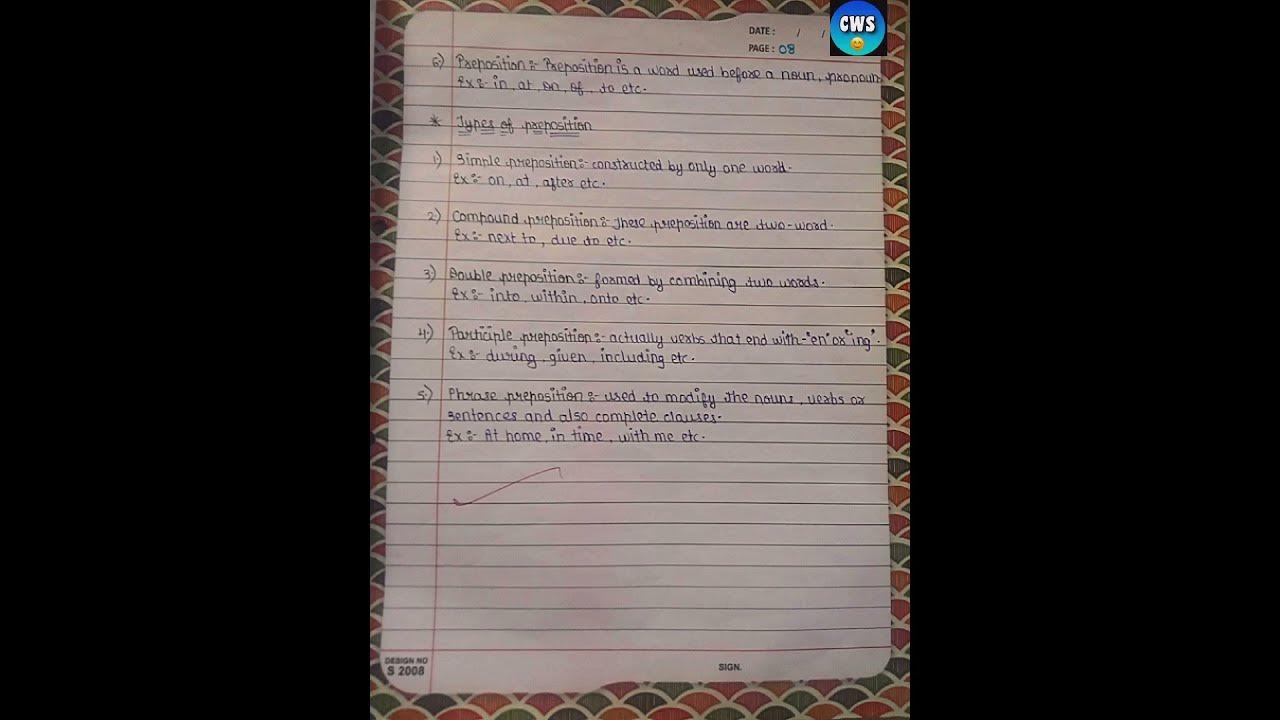 CWS
DATE : / /
PAGE : 08
6) Preposition :- Preposition is a word used before a noun, pronoun
Ex :- in, at, on, of, to etc.
* Types of preposition
1) Simple preposition :- constructed by only one word.
Ex :- on, at, after etc.
2) Compound preposition :- These preposition are two-word.
Ex :- next to, due to etc.
3) Double preposition :- formed by combining two words.
Ex :- into, within, onto etc.
4.) Participle preposition :- actually verbs that end with-"en" or "ing".
Ex :- during, given, including etc.
5.) Phrase preposition :- used to modify the nouns, verbs or
sentences and also complete clauses.
Ex :- At home, in time, with me etc.
DESIGN NO
S 2008
SIGN.